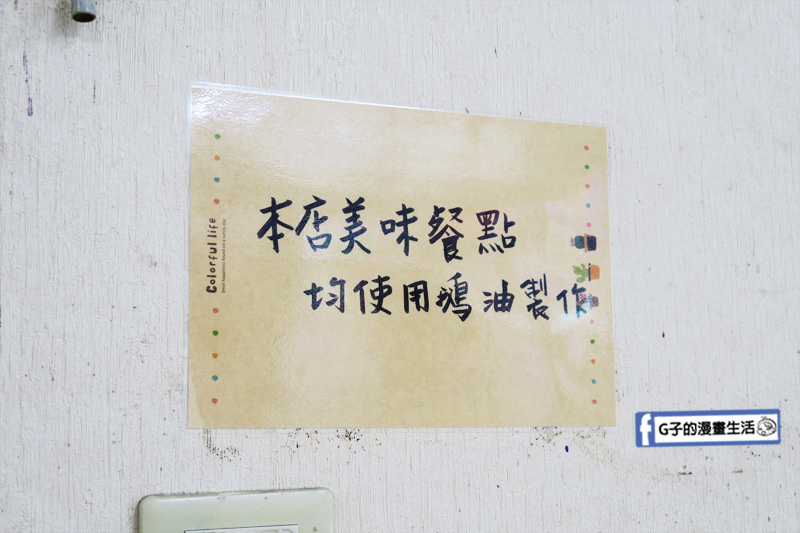 本店美味餐點
均使用鵝油製作
Colorful life
G子的漫畫生活